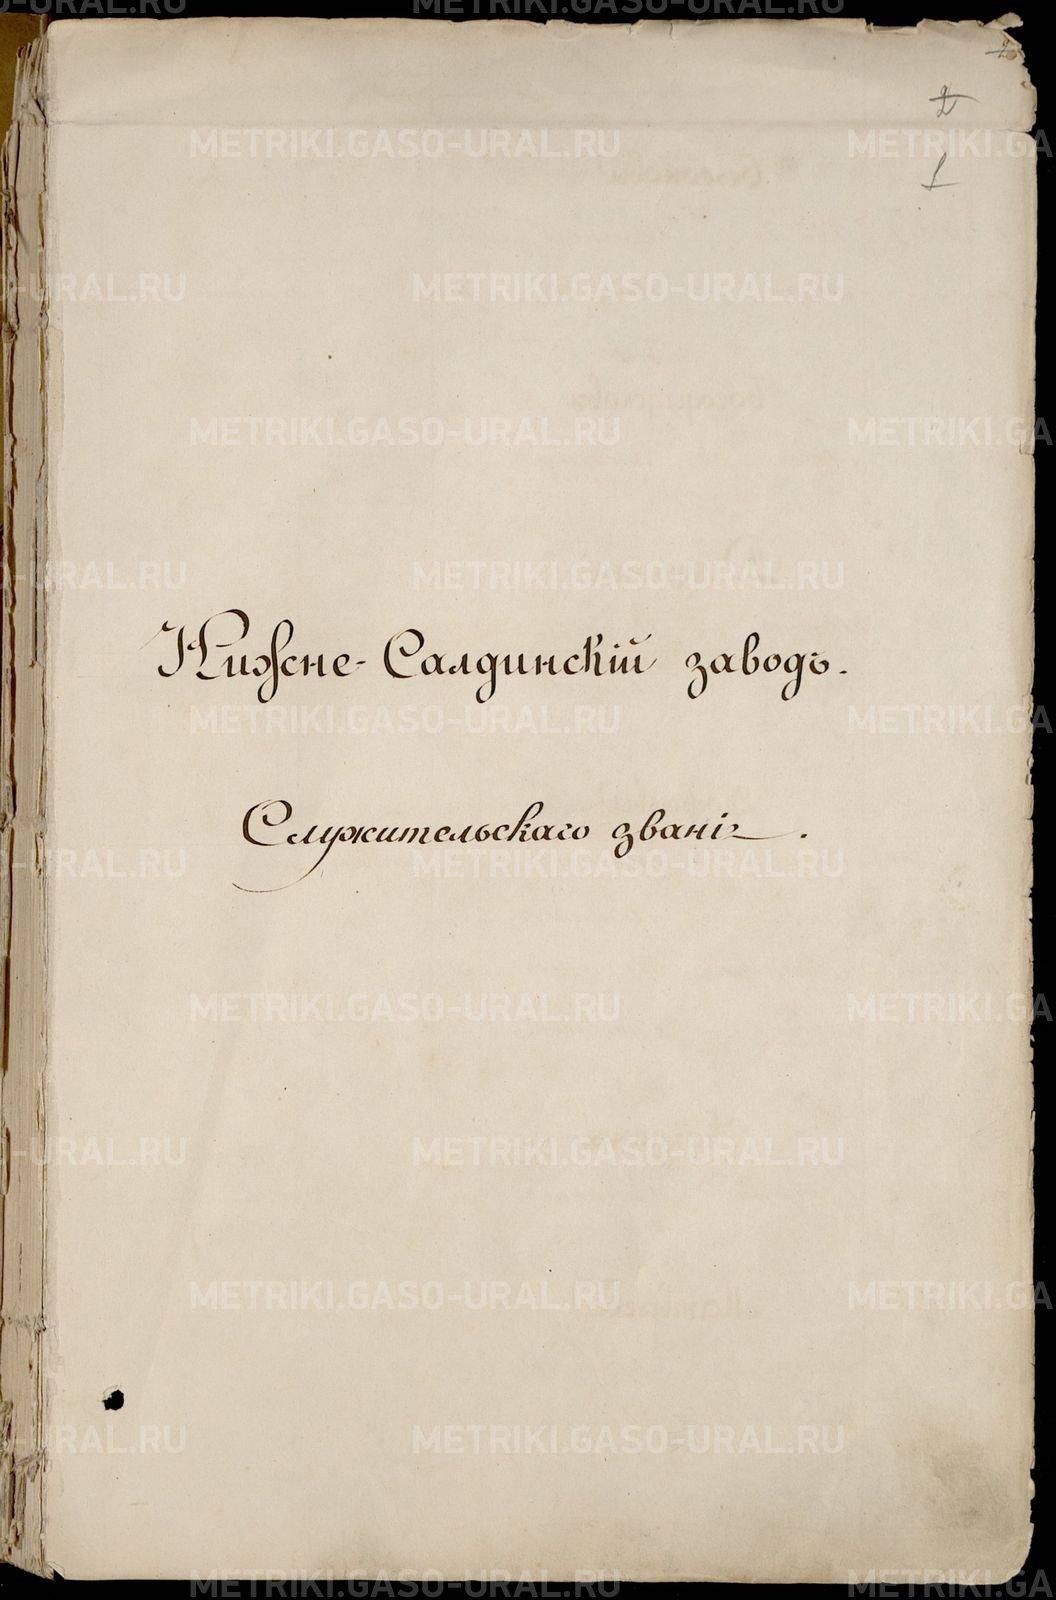 2
1
Нижне-Салдинскій заводъ.
Служительскаго званія.
METRIKI.GASO-URAL.RU